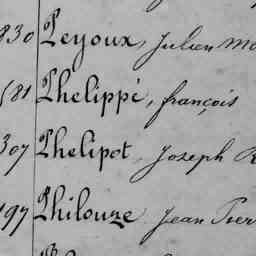 830 Peyoux, Julien Ma
581 Phelippé, françois
307 Phelipot, Joseph R
197 Philouze, Jean Pier